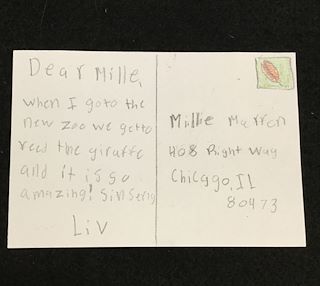 Dear Mille,
when I goto the
new zoo we getto
feed the giraffe
and it is so
amazing! SinSerig
Liv
Millie Marren
408 Right Way
Chicago, IL
80473